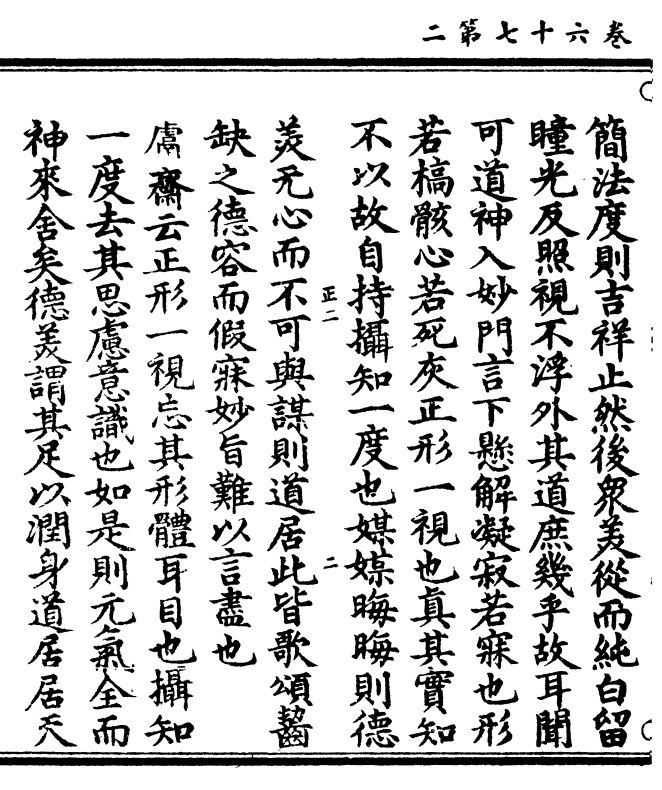 卷六十七第二
簡法度則吉祥止然後衆美從而純白留
瞳光反照視不浮外其道庶幾乎故耳聞
可道神入妙門言下懸解凝寂若寐也形
若槁骸心若死灰正形一視也真其實知
不以故自持攝知一度也媒媒晦晦則德
正二
二
美无心而不可與謀則道居此皆歌頌齧
缺之德容而假寐妙旨難以言盡也
鬳齋云正形一視忘其形體耳目也攝知
一度去其思慮意識也如是則元氣全而
神來舍矣德美謂其足以潤身道居居天